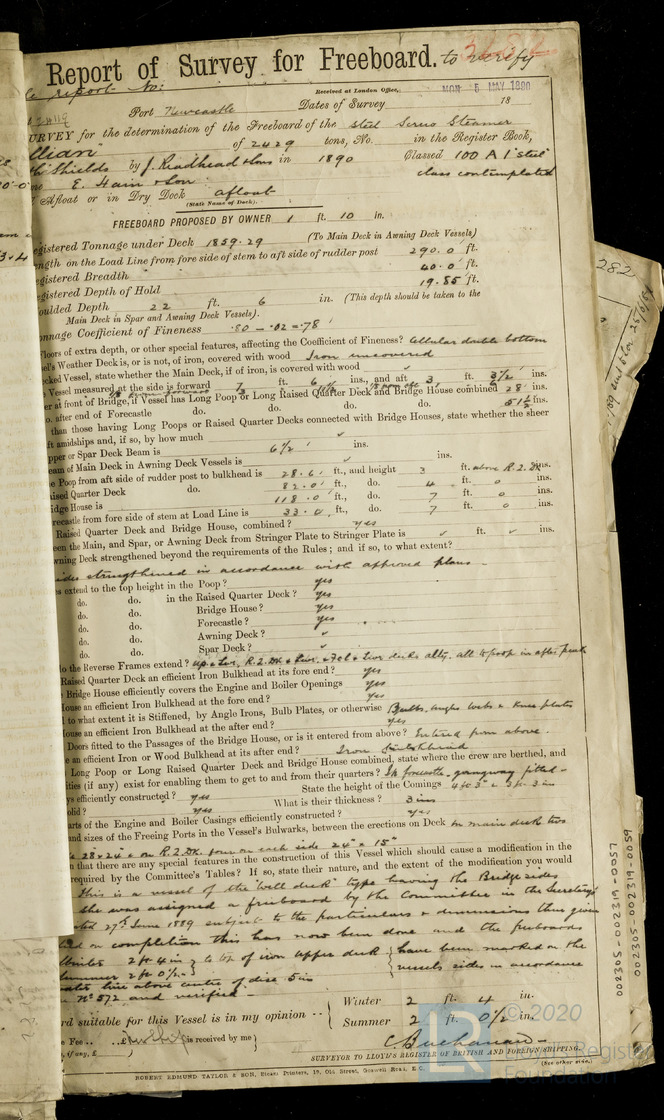 Report of Survey for Freeboard. to verify
report No:
Received at London Office, MON 5 MAY 1890
Port Newcastle Dates of Survey 18
SURVEY for the determination of the Freeboard of the Steel Screw Steamer
of 2429 tons, No. in the Register Book,
Shields by J. Readhead & Sons in 1890 Classed 100 A1 "steel"
E. Hain & Son class contemplated
Afloat or in Dry Dock afloat
(State Name of Dock).
FREEBOARD PROPOSED BY OWNER 1 ft. 10 in.
Registered Tonnage under Deck 1859.29 (To Main Deck in Awning Deck Vessels)
Length on the Load Line from fore side of stem to aft side of rudder post 290.0 ft.
Registered Breadth 40.0 ft.
Registered Depth of Hold 19.85 ft.
Moulded Depth 22 ft. 6 in. (This depth should be taken to the
Main Deck in Spar and Awning Deck Vessels).
Tonnage Coefficient of Fineness .80 - .02 = .78
Floors of extra depth, or other special features, affecting the Coefficient of Fineness? Cellular double bottom
Vessel's Weather Deck is, or is not, of iron, covered with wood Iron uncovered
Decked Vessel, state whether the Main Deck, if of iron, is covered with wood
Vessel measured at the side is forward 7 ft. 6 ins., and aft 3 ft. 3½ ins.
at front of Bridge, if Vessel has Long Poop or Long Raised Quarter Deck and Bridge House combined 28 ins.
Do. after end of Forecastle do. do. do. do. 51½ ins.
than those having Long Poops or Raised Quarter Decks connected with Bridge Houses, state whether the sheer
amidships and, if so, by how much
Upper or Spar Deck Beam is 6½ ins.
Beam of Main Deck in Awning Deck Vessels is ins.
Poop from aft side of rudder post to bulkhead is 28.6 ft., and height 3 ft. above R.Q.Dk ins.
Raised Quarter Deck do. 82.0 ft., do. 4 ft. 0 ins.
Bridge House is 118.0 ft., do. 7 ft. 0 ins.
Forecastle from fore side of stem at Load Line is 33.0 ft., do. 7 ft. 0 ins.
Raised Quarter Deck and Bridge House, combined? yes
between the Main, and Spar, or Awning Deck from Stringer Plate to Stringer Plate is ft. ins.
Awning Deck strengthened beyond the requirements of the Rules; and if so, to what extent?
sides strengthened in accordance with approved plans
extend to the top height in the Poop? yes
do. do. in the Raised Quarter Deck? yes
do. do. Bridge House? yes
do. do. Forecastle? yes
do. do. Awning Deck?
do. do. Spar Deck?
do the Reverse Frames extend? up & Lwr, R.Q.Dk & Lwr, & Fcl & Lwr decks altly. all to poop in after peak
Raised Quarter Deck an efficient Iron Bulkhead at its fore end? yes
Bridge House efficiently covers the Engine and Boiler Openings yes
House an efficient Iron Bulkhead at the fore end? yes
to what extent it is Stiffened, by Angle Irons, Bulb Plates, or otherwise Bulb angles webs & knee plates
House an efficient Iron Bulkhead at the after end? yes
Doors fitted to the Passages of the Bridge House, or is it entered from above? Entered from above.
an efficient Iron or Wood Bulkhead at its after end? Iron
Long Poop or Long Raised Quarter Deck and Bridge House combined, state where the crew are berthed, and
(if any) exist for enabling them to get to and from their quarters? In forecastle, gangway fitted
efficiently constructed? yes State the height of the Comings 4 ft 3" & 3 ft 3 in
solid? yes What is their thickness? 3 ins
parts of the Engine and Boiler Casings efficiently constructed? yes
and sizes of the Freeing Ports in the Vessel's Bulwarks, between the erections on Deck on main deck two
28 x 24 & on R.Q.Dk. four on each side 24" x 15"
that there are any special features in the construction of this Vessel which should cause a modification in the
required by the Committee's Tables? If so, state their nature, and the extent of the modification you would
This is a vessel of the "well deck" type having the Bridge sides
she was assigned a freeboard by the Committee in the Secretary's
dated 27th June 1889 subject to the particulars & dimensions then given
on completion this has now been done and the freeboards
Winter 2 ft 4 in to top of iron upper deck have been marked on the
Summer 2 ft 0½ vessels sides in accordance
water line above centre of disc 5 in
No 572 and verified.
suitable for this Vessel is in my opinion Winter 2 ft. 4 in.
Summer 2 ft. 0½ in.
Fee £ is received by me
(if any, £ )
C. Buchanan
SURVEYOR TO LLOYD'S REGISTER OF BRITISH AND FOREIGN SHIPPING.
(See other side.)
ROBERT EDMUND TAYLOR & SON, Steam Printers, 19, Old Street, Goswell Road, E.C.
282
002305-002319-0057
002305-002319-0059
LR © 2020
Lloyd's Register
Foundation